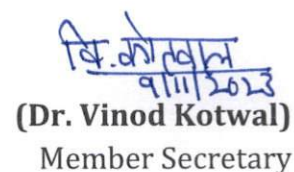 वि. कोतवाल
9/11/2023
(Dr. Vinod Kotwal)
Member Secretary